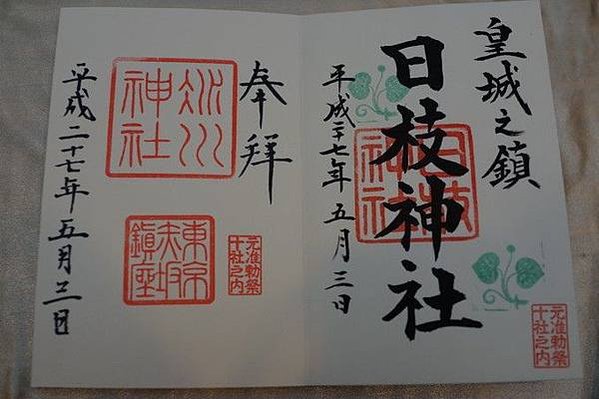 皇城之鎮
日枝神社
日枝神社
平成二十七年五月三日
元准勅祭
十社之内
奉拝
氷川
神社
東京
赤坂
鎮座
元准勅祭
十社之内
平成二十七年五月三日